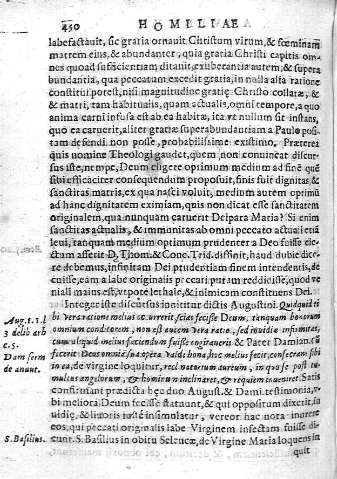 450 HOMELIAE A
labefactauit, sic gratia ornauit Christum virum, & fœminam
matrem eius, & abundanter, quia gratia Christi capitis om-
nes quod sufficientiam ditauit, exuberantia autem, & supera
bundantia, qua peccatum excedit gratia, in nulla alia ratione
constitui potest, nisi magnitudine gratię Christo collatæ, &
& matri, tam habitualis, quam actualis, omni tempore, a quo
anima carni infusa est ab ea habitæ, ita vt nullum sit instans,
quo ea caruerit, aliter gratiæ superabundantiam a Paulo posi-
tam defendi non posse, probabilissime existimo. Præterea
quis nomine Theologi gaudet, quem non conuincat discur-
sus iste, nempe, Deum eligere optimum mediũ ad finẽ quẽ
sibi efficaciter consequendum proposuit, finis fuit dignitas &
sanctitas matris, ex qua nasci voluit, medium autem optimũ
ad hanc dignitatem eximiam, quis non dicat esse sanctitatem
originalem, qua nunquam caruerit Deipara Maria? Si enim
sanctitas actualis, & immunitas ab omni peccato actuali etiã
leui, tanquam medium optimum prudenter a Deo fuisse ele-
ctum asserit D. Thom. & Conc. Trid. diffinit, haud dubie dice
re debemus, infinitam Dei prudentiam finem intendentis, de
cuisse, eam a labe originalis peccati puram reddidisse, quod ve
niali maius est, vtpote lethale, & inimicam constituens Dei.
Integer iste discursus innititur dictis Augustini. Quidquid ti
Aug. l.
3 delib arb
c. 5.
bi vera ratione melius occurrerit scias fecisse Deum, tanquam bonorum
omnium conditorem, non est autem vera ratio, sed inuidia infirmitas,
cum aliquid melius faciendum fuisse cogitaueris & Pater Damian. cũ
Dam serm
de annut.
fecerit Deus omnia sua opera valde bona, hoc melius fecit, consecrans sibi
in ea, de virgine loquitur, reclinatorium aureum, in qua se post tu-
multus angelorum, & hominum inclinaret, & requiem inueniret. Satis
constituunt prædicta hęc duo August. & Dami. testimonia, v-
bi meliora Deum fecisse statuunt, & qui oppositum dixerit, in
uidię, & liuoris iuste insimulatur, vereor hac nota inurere
eos, qui peccati originalis labe Virginem infectam fuisse di-
S. Basilius.
cunt. S. Basilius in obitu Seleucæ, de Virgine Maria loquens in
quit